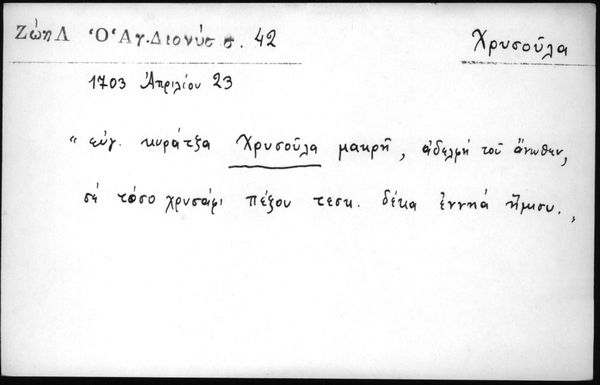 Ζώη Λ Ὁ Ἅγ. Διονύσ σ. 42
Χρυσοῦλα
1703 Ἀπριλίου 23
" εὐγ. κυράτζα Χρυσοῦλα μακρῆ, ἀδελφή τοῦ ἄνωθεν,
σέ τόσο χρυσάφι πέζου τεσκ. δέκα ἐννηά ἥμισυ. "